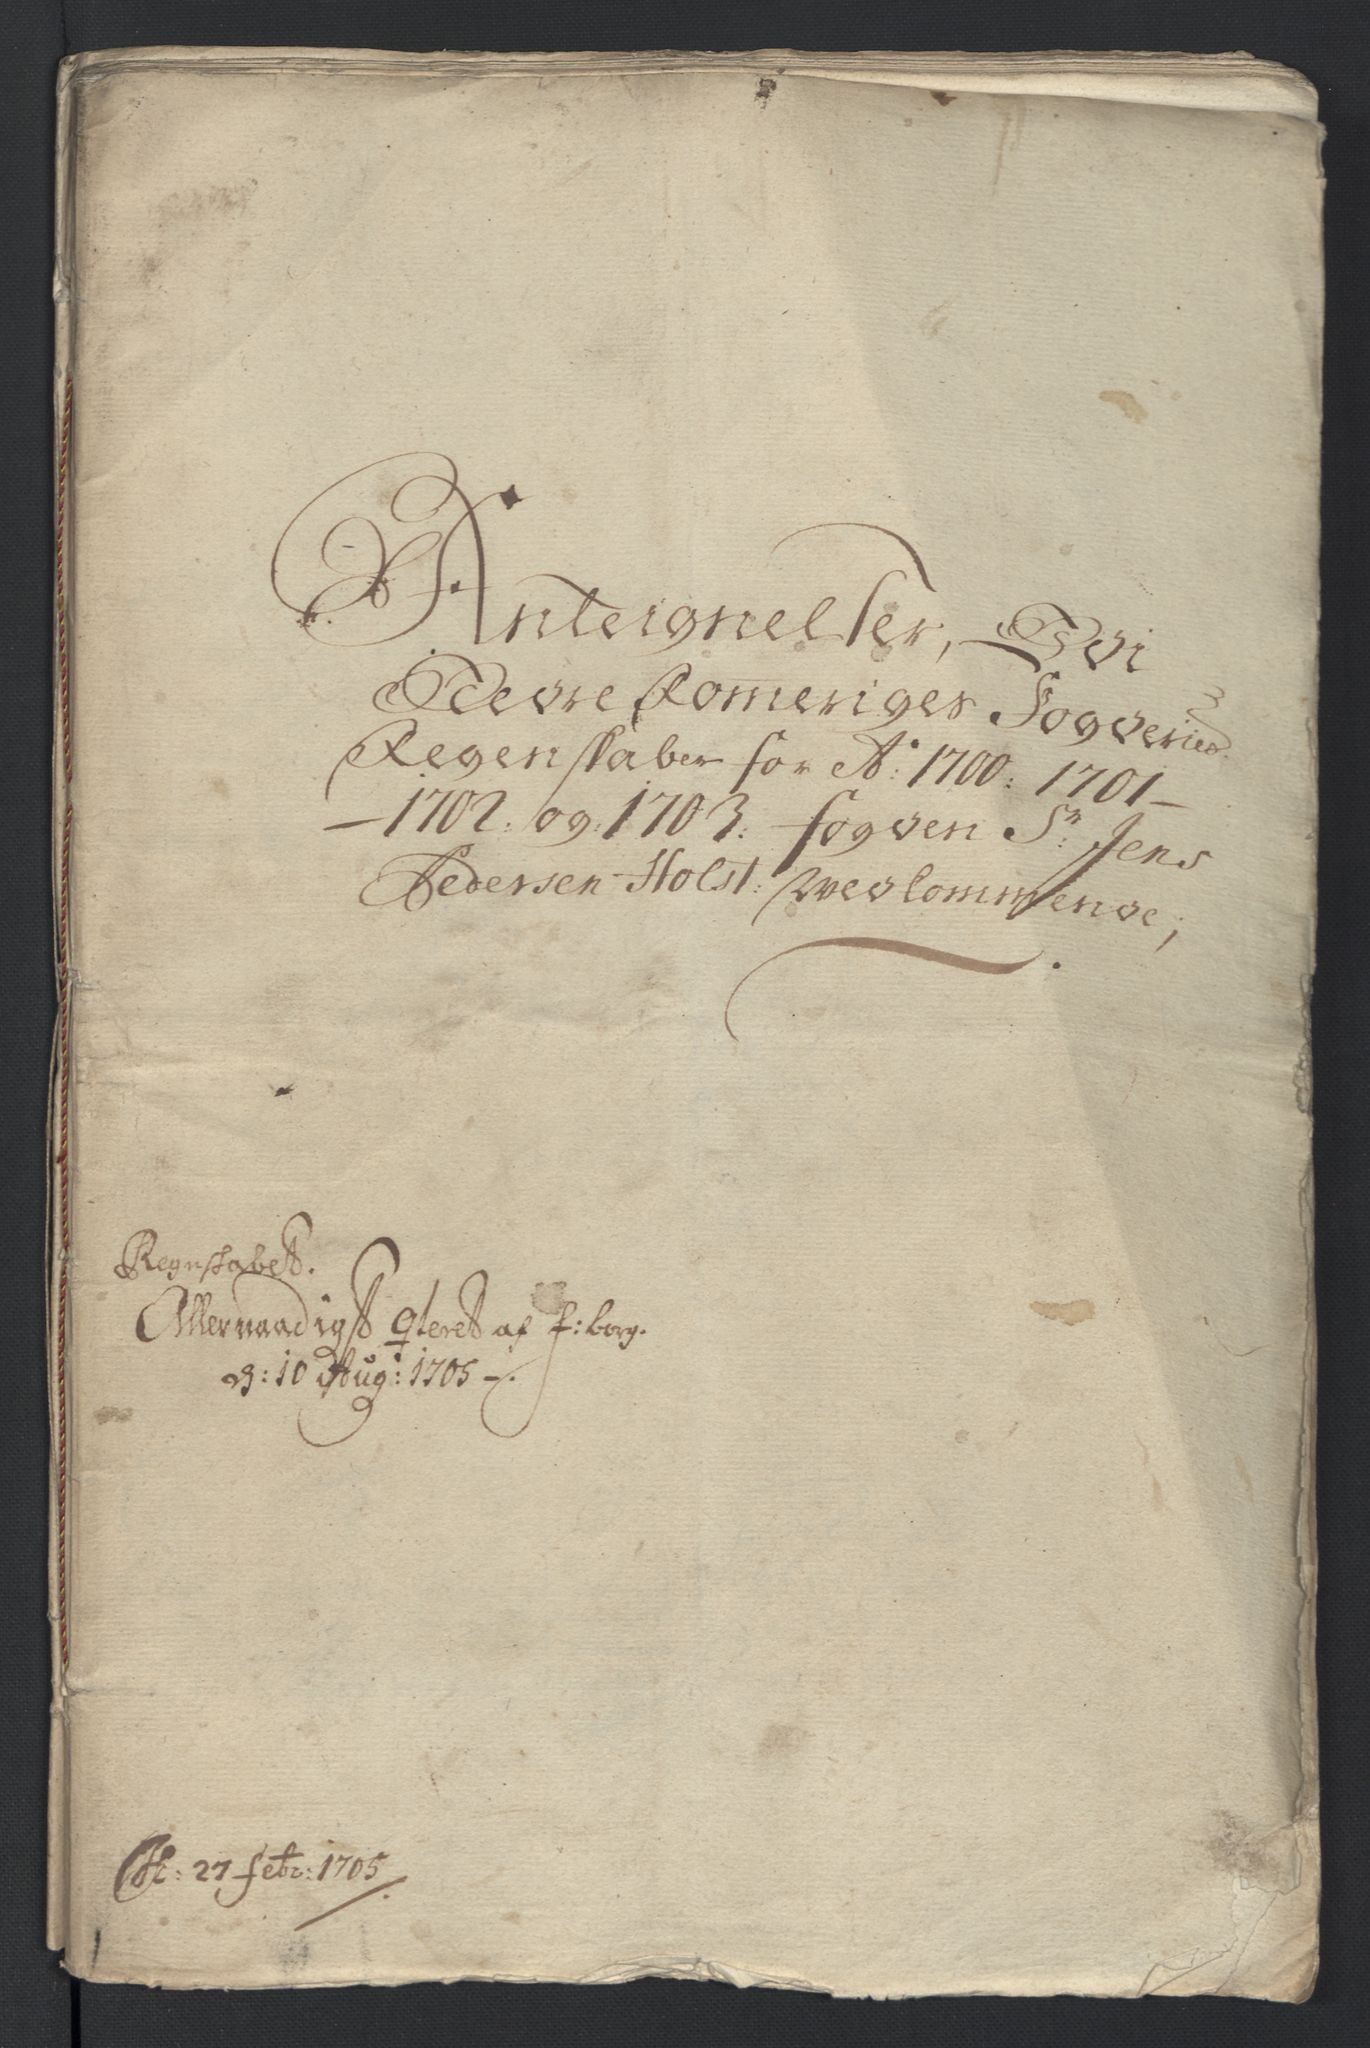 Anteignelser, Ved
Nedre Romeriges Fogderies
Regenskaber for Aº: 1700: 1701 –
– 1702: og: 1703: fogden Sr: Jens
Pedersen Holst: Vedkommende;
Regnskabet.
Allernaadigst qteret af F:borg.
d: 10 Aug: 1705 –.
27 febr: 1705